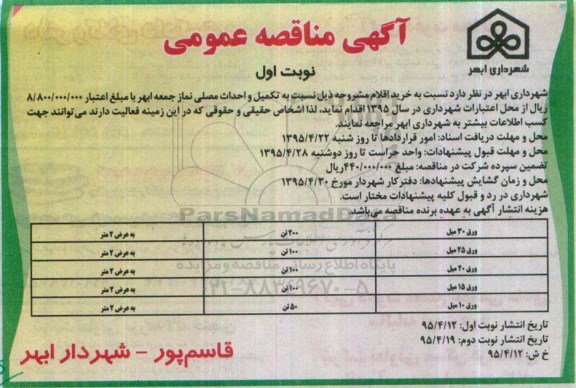 آگهی مناقصه عمومی
شهرداری ابهر
نوبت اول
شهرداری ابهر در نظر دارد نسبت به خرید اقلام مشروحه ذیل نسبت به تکمیل و احداث مصلی نماز جمعه ابهر با مبلغ اعتبار ۸/۸۰۰/۰۰۰/۰۰۰
ریال از محل اعتبارات شهرداری در سال ۱۳۹۵ اقدام نماید. لذا اشخاص حقیقی و حقوقی که در این زمینه فعالیت دارند می‌توانند جهت
کسب اطلاعات بیشتر به شهرداری ابهر مراجعه نمایند.
محل و مهلت دریافت اسناد: امور قراردادها تا روز شنبه ۱۳۹۵/۴/۲۲
محل و مهلت قبول پیشنهادات: واحد حراست تا روز دوشنبه ۱۳۹۵/۴/۲۸
تضمین سپرده شرکت در مناقصه: مبلغ ۴۴۰/۰۰۰/۰۰۰ریال
محل و زمان گشایش پیشنهادها: دفتر کار شهردار مورخ ۱۳۹۵/۴/۳۰
شهرداری در رد و قبول کلیه پیشنهادات مختار است.
هزینه انتشار آگهی به عهده برنده مناقصه می‌باشد.
ParsNamadData
ورق ۳۰ میل ۲۰۰ تن به عرض ۲ متر
ورق ۲۵ میل ۱۰۰ تن به عرض ۲ متر
ورق ۲۰ میل ۱۰۰ تن به عرض ۲ متر
ورق ۱۵ میل ۱۰۰ تن به عرض ۲ متر
ورق ۱۰ میل ۵۰ تن به عرض ۲ متر
پایگاه اطلاع رسانی مناقصه و مزایده
تاریخ انتشار نوبت اول: ۹۵/۴/۱۲
تاریخ انتشار نوبت دوم: ۹۵/۴/۱۹
خ ش: ۹۵/۴/۱۲
قاسم‌پور - شهردار ابهر